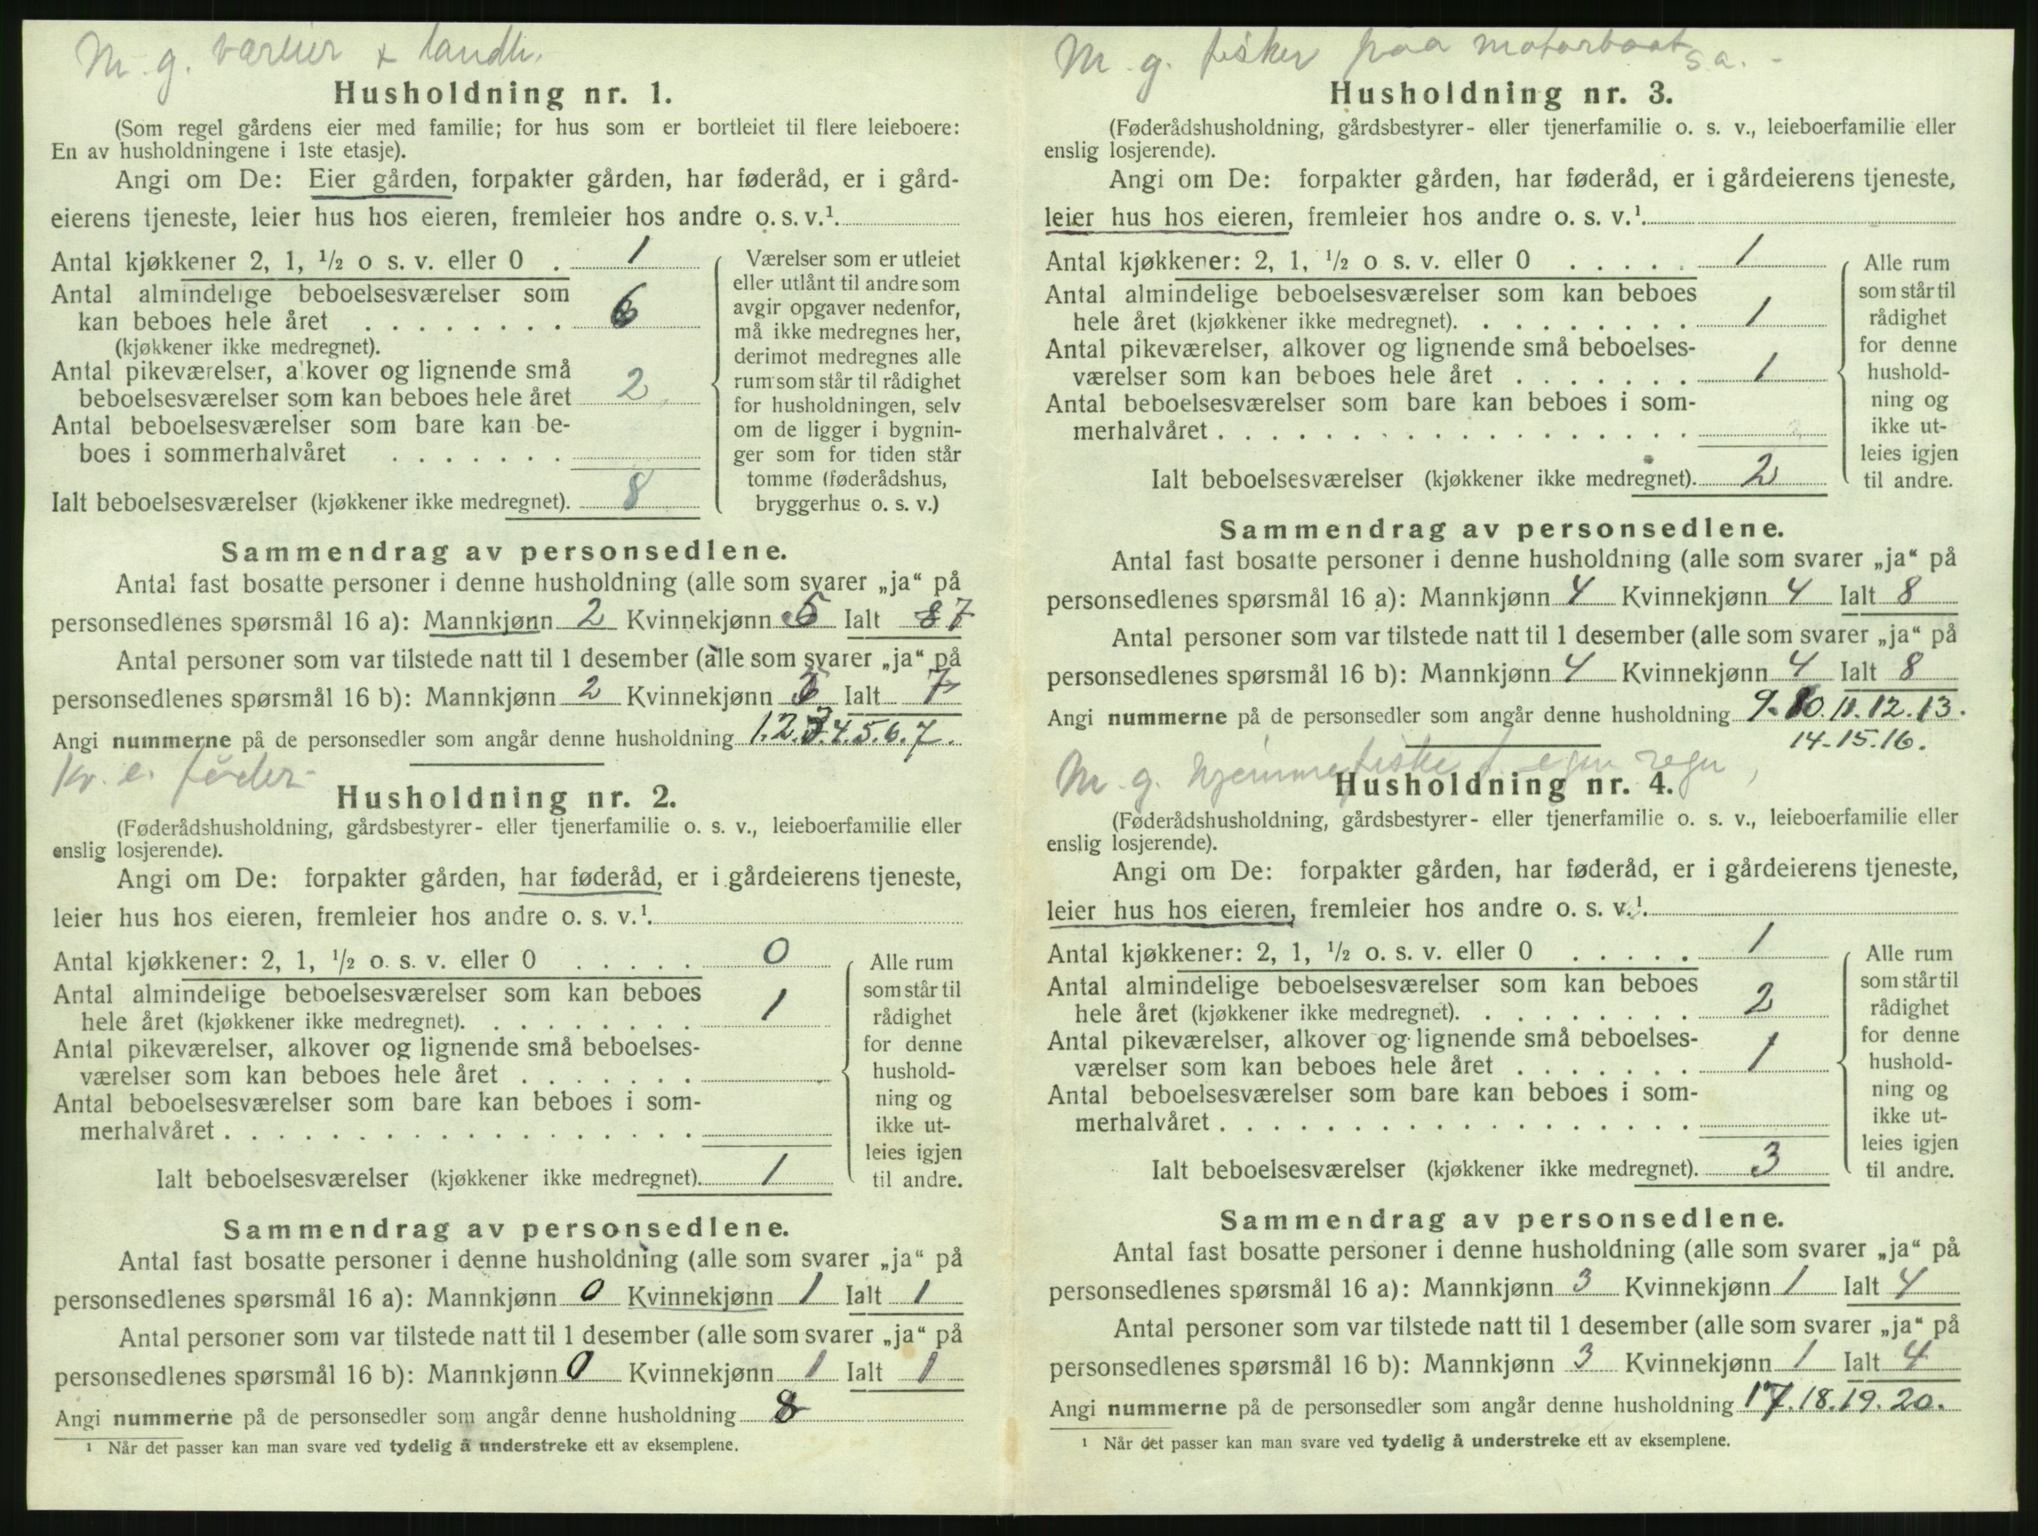 M. g. væreier & landh.
Husholdning nr. 1.
(Som regel gårdens eier med familie; for hus som er bortleiet til flere leieboere:
En av husholdningene i 1ste etasje).
Angi om De: Eier gården, forpakter gården, har føderåd, er i gård-
eierens tjeneste, leier hus hos eieren, fremleier hos andre o. s. v.¹.
Antal kjøkkener 2, 1, ½ o s. v. eller 0 . 1
Antal almindelige beboelsesværelser som
kan beboes hele året . . . . . . . . 6
(kjøkkener ikke medregnet).
Antal pikeværelser, alkover og lignende små
beboelsesværelser som kan beboes hele året 2
Antal beboelsesværelser som bare kan be-
boes i sommerhalvåret . . . . . . .
Ialt beboelsesværelser (kjøkkener ikke medregnet). 8
Værelser som er utleiet
eller utlånt til andre som
avgir opgaver nedenfor,
må ikke medregnes her,
derimot medregnes alle
rum som står til rådighet
for husholdningen, selv
om de ligger i bygnin-
ger som for tiden står
tomme (føderådshus,
bryggerhus o. s. v.)
Sammendrag av personsedlene.
Antal fast bosatte personer i denne husholdning (alle som svarer „ja“ på
personsedlenes spørsmål 16 a): Mannkjønn 2 Kvinnekjønn 5 Ialt 8 7
Antal personer som var tilstede natt til 1 desember (alle som svarer „ja“ på
personsedlenes spørsmål 16 b): Mannkjønn 2 Kvinnekjønn 5 Ialt 7
Angi nummerne på de personsedler som angår denne husholdning 1.2.3.4.5.6.7.
Kv. e. føder.
Husholdning nr. 2.
(Føderådshusholdning, gårdsbestyrer- eller tjenerfamilie o. s. v., leieboerfamilie eller
enslig losjerende).
Angi om De: forpakter gården, har føderåd, er i gårdeierens tjeneste,
leier hus hos eieren, fremleier hos andre o. s. v.¹.
Antal kjøkkener: 2, 1, ½ o. s. v. eller 0 . . . . . 0
Antal almindelige beboelsesværelser som kan beboes
hele året (kjøkkener ikke medregnet). . . . . . . . . 1
Antal pikeværelser, alkover og lignende små beboelses-
værelser som kan beboes hele året . . . . . . .
Antal beboelsesværelser som bare kan beboes i som-
merhalvåret . . . . . . . . . . . . . . . . . .
Ialt beboelsesværelser (kjøkkener ikke medregnet). 1
Alle rum
som står til
rådighet
for denne
hushold-
ning og
ikke ut-
leies igjen
til andre.
Sammendrag av personsedlene.
Antal fast bosatte personer i denne husholdning (alle som svarer „ja“ på
personsedlenes spørsmål 16 a): Mannkjønn 0 Kvinnekjønn 1 Ialt 1
Antal personer som var tilstede natt til 1 desember (alle som svarer „ja“ på
personsedlenes spørsmål 16 b): Mannkjønn 0 Kvinnekjønn 1 Ialt 1
Angi nummerne på de personsedler som angår denne husholdning 8
¹ Når det passer kan man svare ved tydelig å understreke ett av eksemplene.
M. g. fisker paa motorbaat s.a.
Husholdning nr. 3.
(Føderådshusholdning, gårdsbestyrer- eller tjenerfamilie o. s. v., leieboerfamilie eller
enslig losjerende).
Angi om De: forpakter gården, har føderåd, er i gårdeierens tjeneste,
leier hus hos eieren, fremleier hos andre o. s. v.¹.
Antal kjøkkener: 2, 1, ½ o s. v. eller 0 . . . . . 1
Antal almindelige beboelsesværelser som kan beboes
hele året (kjøkkener ikke medregnet). . . . . . . . . 1
Antal pikeværelser, alkover og lignende små beboelses-
værelser som kan beboes hele året . . . . . . . 1
Antal beboelsesværelser som bare kan beboes i som-
merhalvåret . . . . . . . . . . . . . . . . . .
Ialt beboelsesværelser (kjøkkener ikke medregnet). 2
Alle rum
som står til
rådighet
for denne
hushold-
ning og
ikke ut-
leies igjen
til andre.
Sammendrag av personsedlene.
Antal fast bosatte personer i denne husholdning (alle som svarer „ja“ på
personsedlenes spørsmål 16 a): Mannkjønn 4 Kvinnekjønn 4 Ialt 8
Antal personer som var tilstede natt til 1 desember (alle som svarer „ja“ på
personsedlenes spørsmål 16 b): Mannkjønn 4 Kvinnekjønn 4 Ialt 8
Angi nummerne på de personsedler som angår denne husholdning 9.10.11.12.13.
14.15.16.
M. g. hjemmefiske f. egen regn,
Husholdning nr. 4.
(Føderådshusholdning, gårdsbestyrer- eller tjenerfamilie o. s. v., leieboerfamilie eller
enslig losjerende).
Angi om De: forpakter gården, har føderåd, er i gårdeierens tjeneste,
leier hus hos eieren, fremleier hos andre o. s. v.¹.
Antal kjøkkener: 2, 1, ½ o. s. v. eller 0 . . . . . 1
Antal almindelige beboelsesværelser som kan beboes
hele året (kjøkkener ikke medregnet). . . . . . . . . 2
Antal pikeværelser, alkover og lignende små beboelses-
værelser som kan beboes hele året . . . . . . . 1
Antal beboelsesværelser som bare kan beboes i som-
merhalvåret . . . . . . . . . . . . . . . . . .
Ialt beboelsesværelser (kjøkkener ikke medregnet). 3
Alle rum
som står til
rådighet
for denne
hushold-
ning og
ikke ut-
leies igjen
til andre.
Sammendrag av personsedlene.
Antal fast bosatte personer i denne husholdning (alle som svarer „ja“ på
personsedlenes spørsmål 16 a): Mannkjønn 3 Kvinnekjønn 1 Ialt 4
Antal personer som var tilstede natt til 1 desember (alle som svarer „ja“ på
personsedlenes spørsmål 16 b): Mannkjønn 3 Kvinnekjønn 1 Ialt 4
Angi nummerne på de personsedler som angår denne husholdning 17.18.19.20.
¹ Når det passer kan man svare ved tydelig å understreke ett av eksemplene.